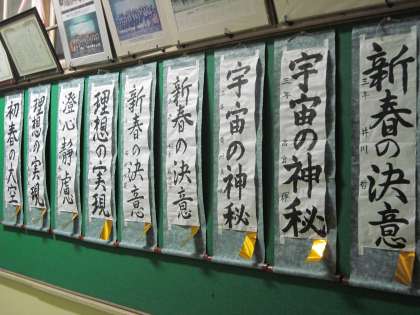 新春の決意
三年 井川
宇宙の神秘
三年
宇宙の神秘
新春の決意
新春の決意
理想の実現
澄心静慮
理想の実現
初春の大空